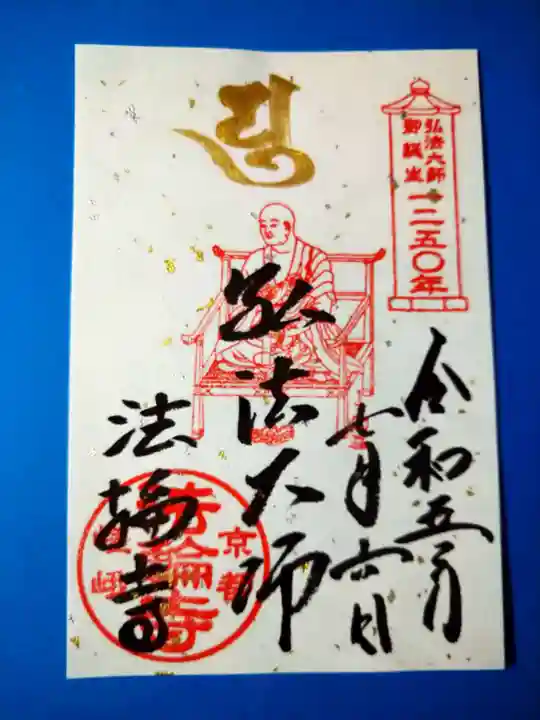 弘法大師
御誕生
一二五〇年
令和五年
七月六日
弘法大師
法輪寺
京都
嵯峨
法輪寺